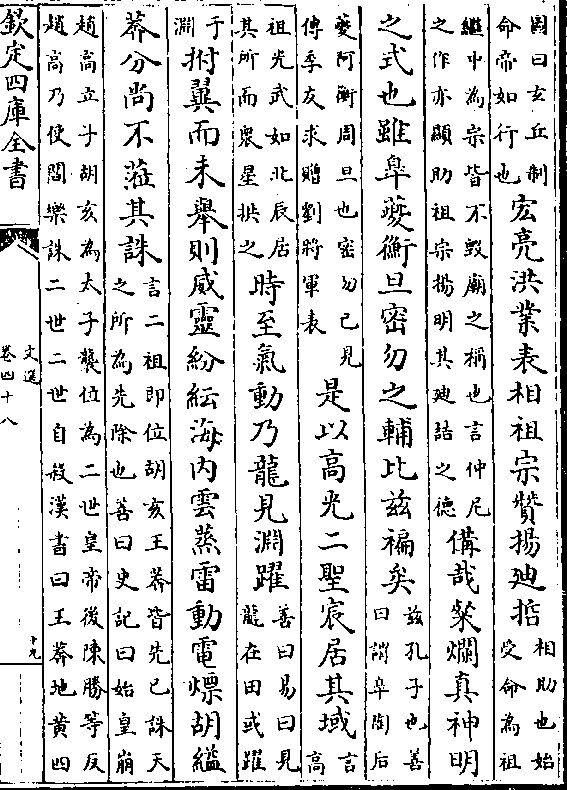 圖曰玄丘制
命帝如行也
宏亮洪業表相祖宗贊揚廸哲
相助也始
受命為祖
繼中為宗皆不毀廟之稱也言仲尼
之作亦顯助祖宗揚明其廸喆之德
備哉粲爛真神明
之式也雖臯夔衡旦密勿之輔比茲褊矣
茲孔子也善
曰謂臯陶后
夔阿衡周旦也密勿已見
傅季友求贈劉將軍表
是以高光二聖宸居其域
言
高
祖光武如北辰居
其所而衆星拱之
時至氣動乃龍見淵躍
善曰易曰見
龍在田或躍
于
淵
拊翼而未舉則威靈紛紜海内雲蒸雷動電熛胡縊
莽分尚不蒞其誅
言二祖即位胡亥王莽皆先已誅天
之所為先除也善曰史記曰始皇崩
趙高立子胡亥為太子襲位為二世皇帝後陳勝等反
趙高乃使閻樂誅二世二世自殺漢書曰王莽地黄四
欽定四庫全書
文選
卷四十八
十九